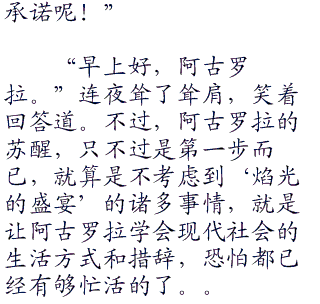 承诺呢！”
“早上好，阿古罗
拉。”连夜耸了耸肩，笑着
回答道。不过，阿古罗拉的
苏醒，只不过是第一步而
已，就算是不考虑到‘焰光
的盛宴’的诸多事情，就是
让阿古罗拉学会现代社会的
生活方式和措辞，恐怕都已
经有够忙活的了。。